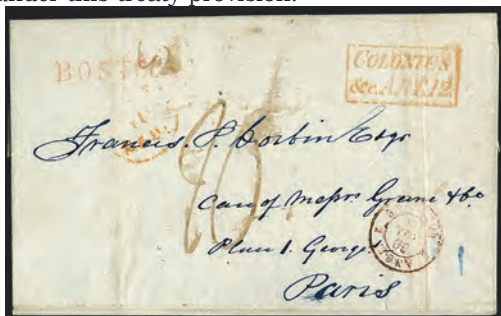 under this treaty provision.
BOSTON
COLONIES
&c. ART. 12
Francis. P. Corbin Esqr
Care of Messrs Greene & Co
Place S. George
Paris